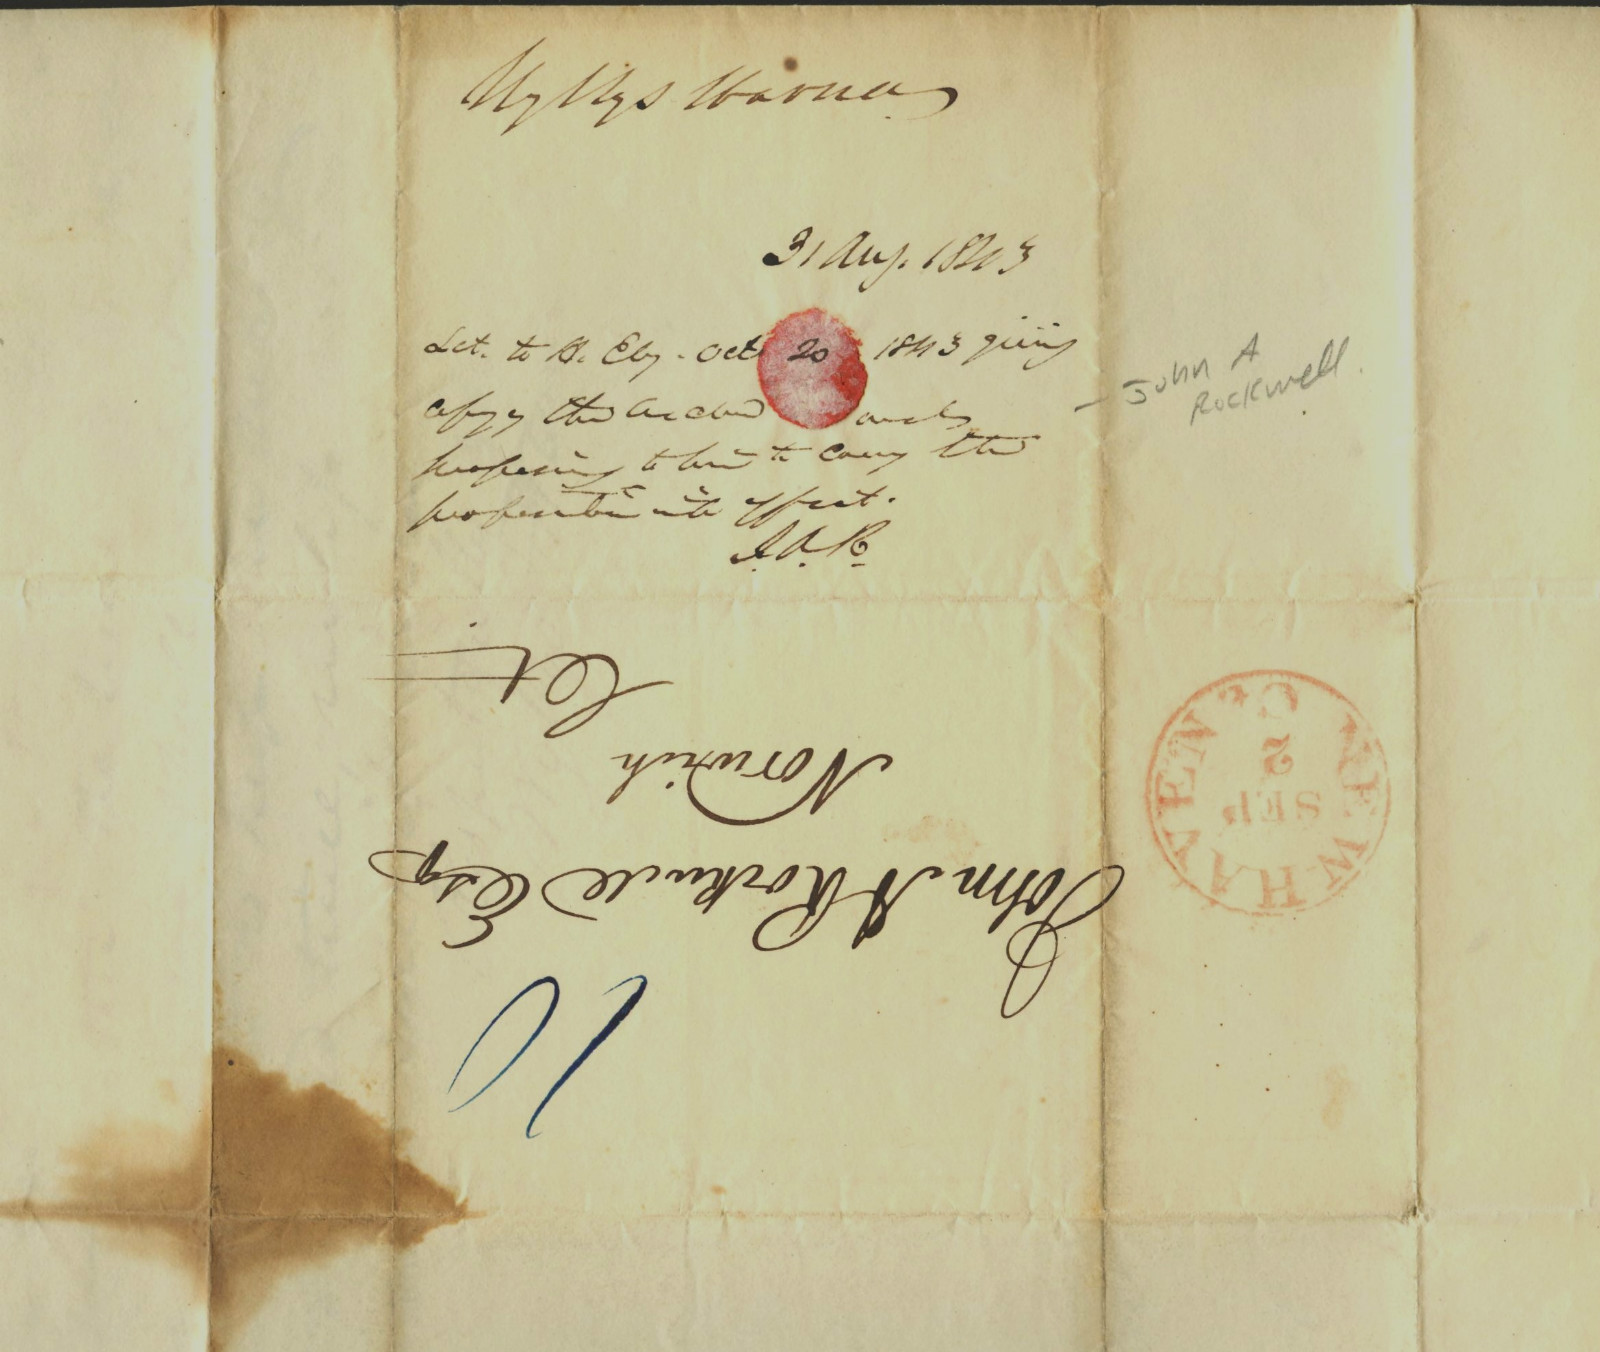 Wyllys Warner
31 Aug. 1843
Let. to H. Ely. Oct 20 1843 giving
copy of the within and
proposing to him to carry the
proposition into effect.
J.A.R.
John A
Rockwell.
Ct
Norwich
John A Rockwell Esq
10
NEW HAVEN Ct
SEP
2